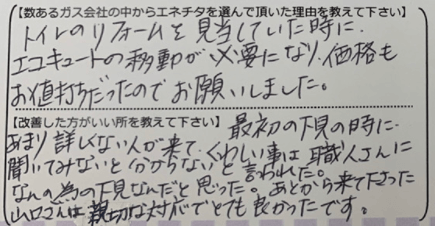 【数あるガス会社の中からエネチタを選んで頂いた理由を教えて下さい】
トイレのリフォームを見当していた時に、
エコキュートの移動が必要になり、価格も
お値打ちだったのでお願いしました。
【改善した方がいい所を教えて下さい】 最初の下見の時に
あまり詳しくない人が来て、くわしい事は職人さんに
聞いてみないと分からないと言われた。
なんの為の下見なんだと思った。あとから来て下さった
山口さんは親切な対応でとても良かったです。